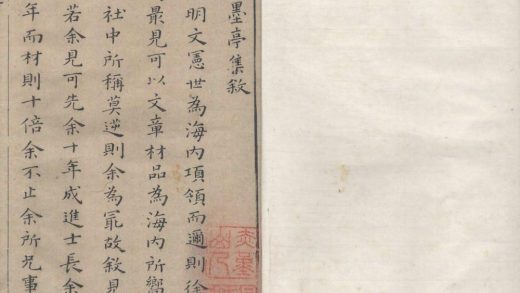 墨亭集敘
明文憲世為海內項領而邇則徐
最見可以文章材品為海內所嚮
社中所稱莫逆則余為冣故敘見
若余見可先余十年成進士長余
年而材則十倍余不止余所兄事